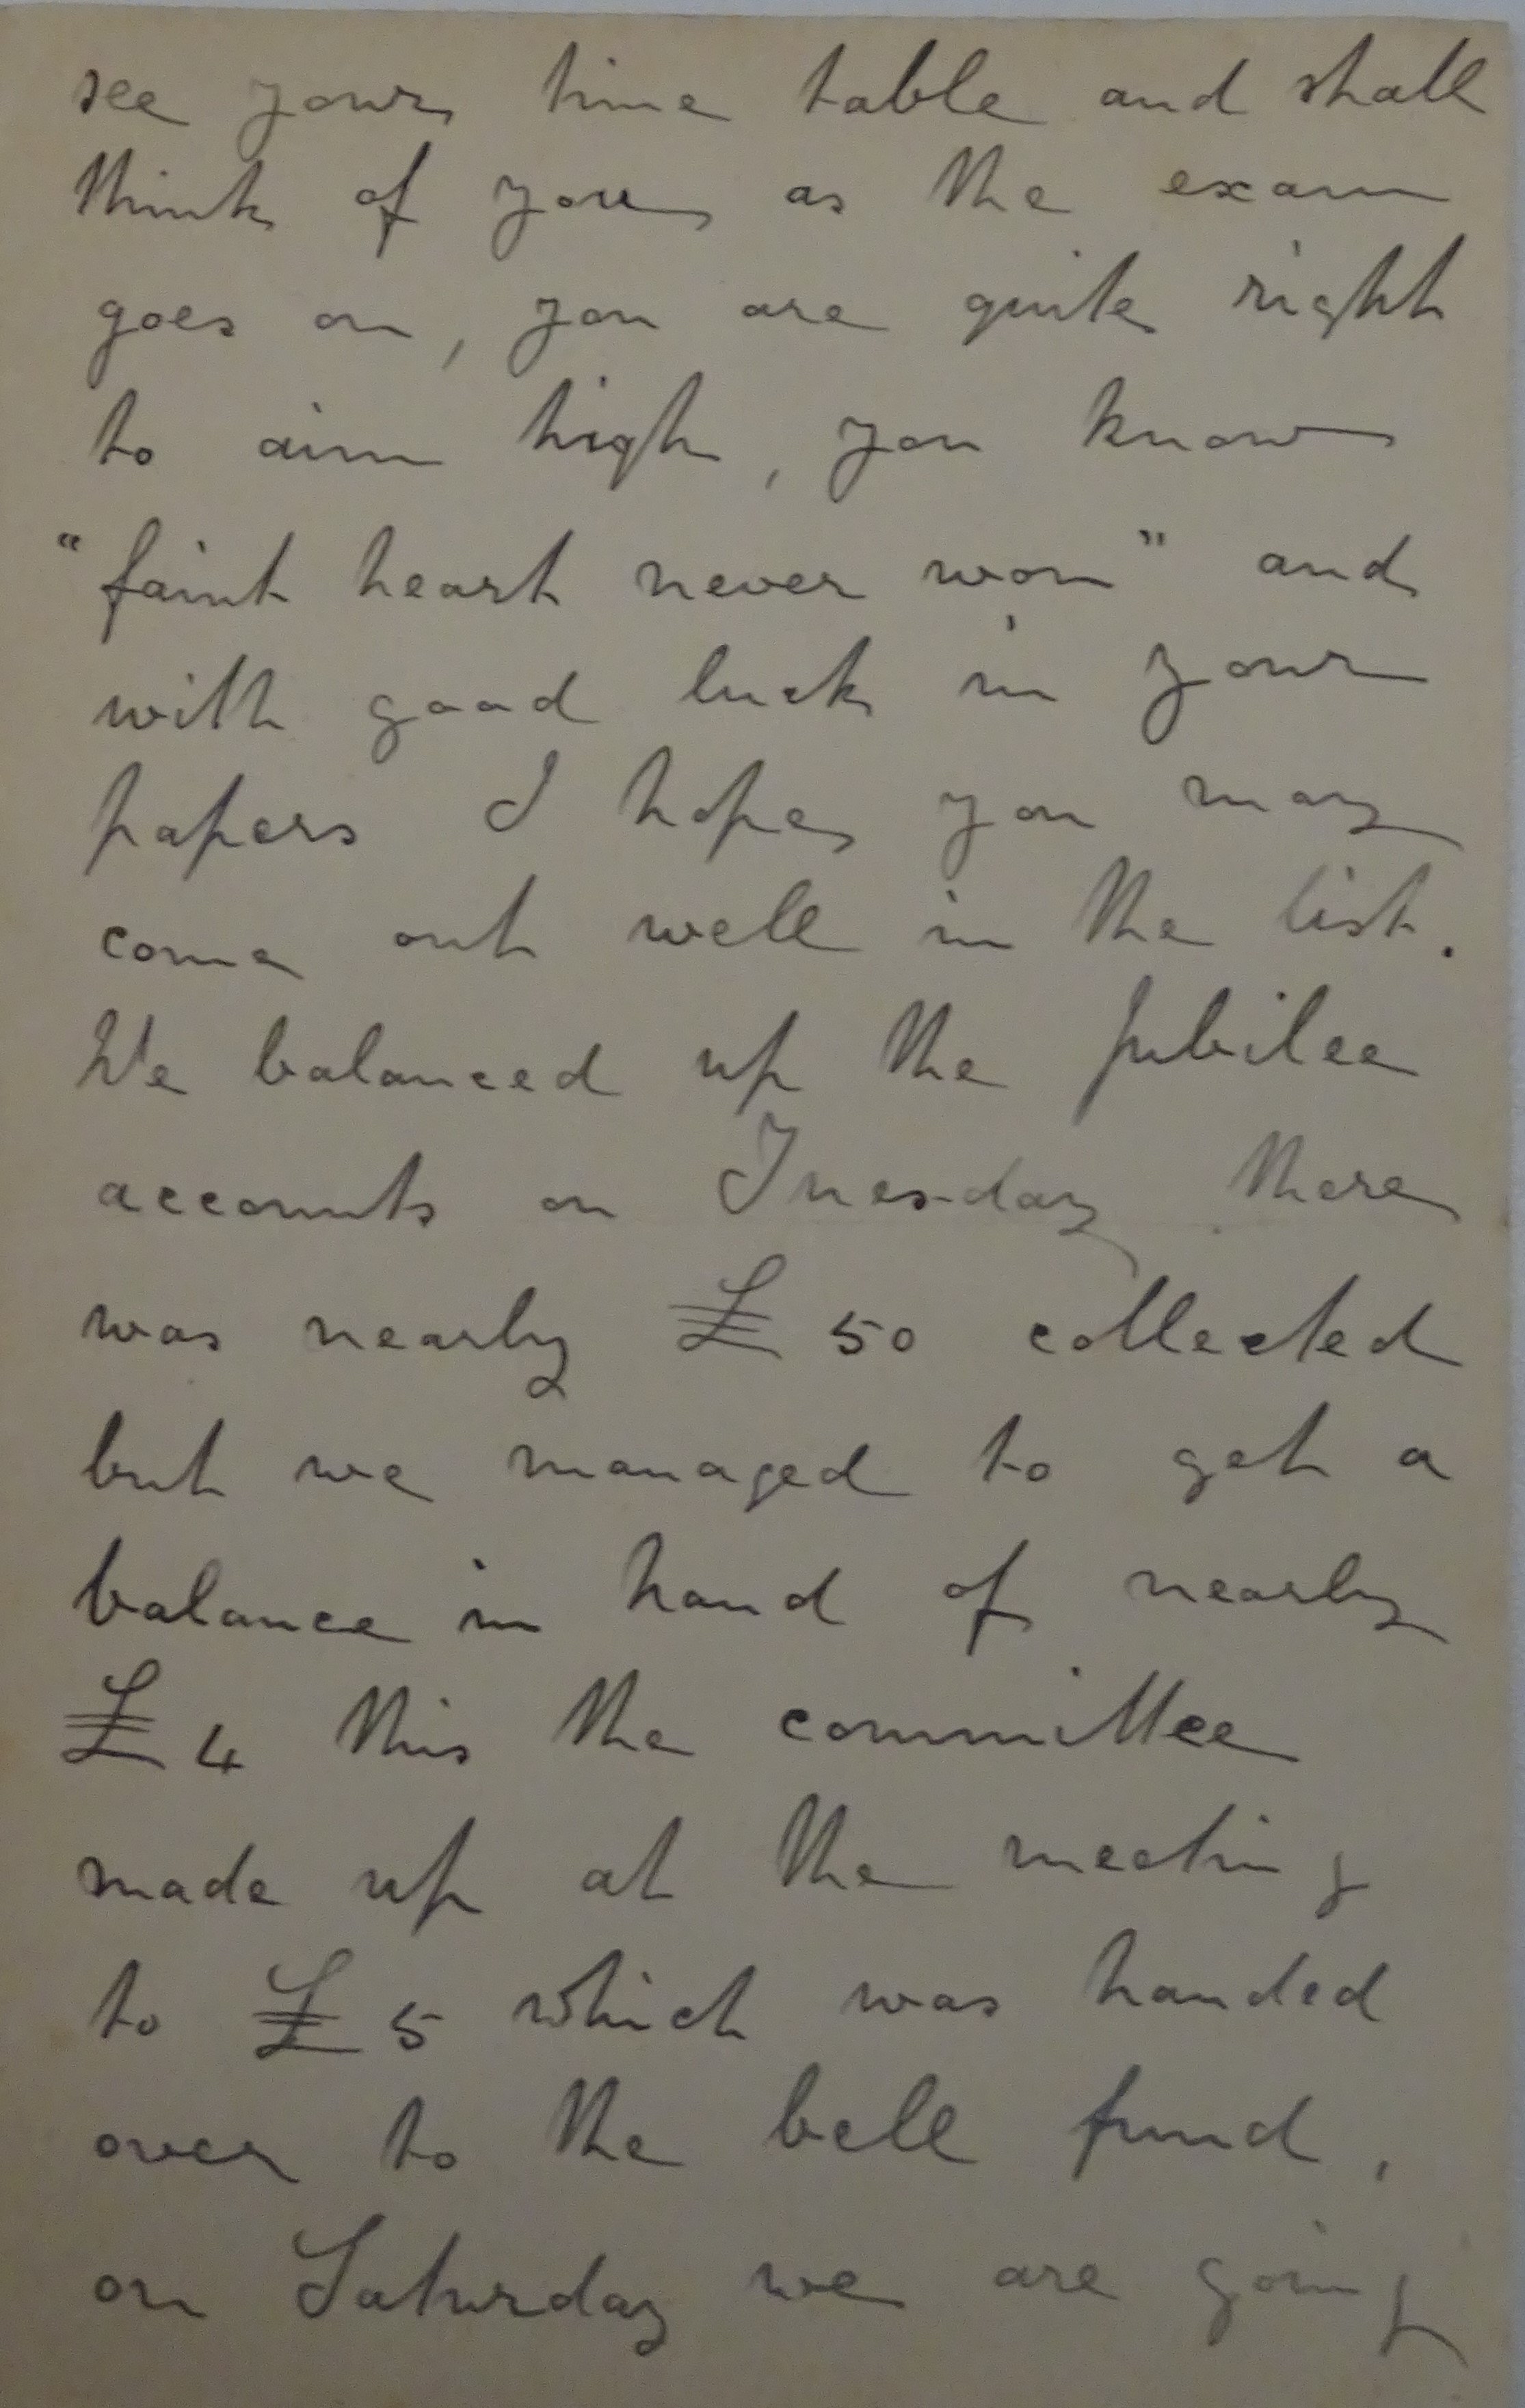 see your time table and shall
think of you as the exam
goes on, you are quite right
to aim high, you know
"faint heart never won" and
with good luck in your
papers I hope you may
come out well in the list.
We balanced up the Jubilee
accounts on Tuesday there
was nearly £50 collected
but we managed to get a
balance in hand of nearly
£4 this the committee
made up at the meeting
to £5 which was handed
over to the bell fund,
on Saturday we are going